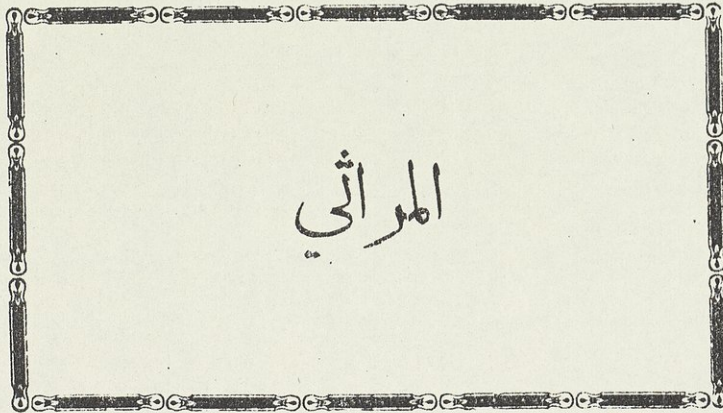 المراثي